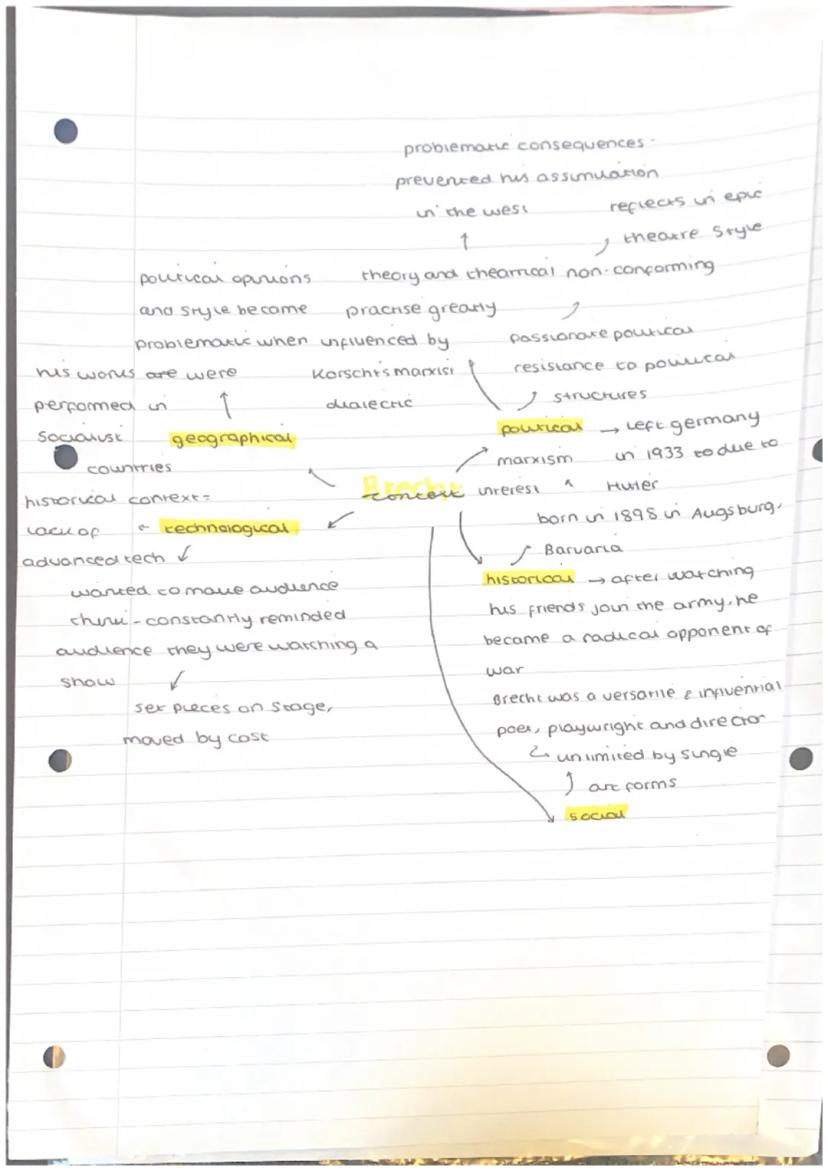 problematic consequences -
prevented his assimulation
in the west
reflects in epic
theatre style
theory and theatrical non-conforming
practise greatly
influenced by
Korsch's marxist
dialectic
political opinions
and style became
problematic when
his works are were
performed in
socialist
countries
geographical
passionate political
resistance to political
structures
political → left germany
in 1933 to due to
Hitler
marxism
interest
Brecht
context
historical context =
lack of
advanced tech
technological
wanted to make audience
think - constantly reminded
audience they were watching a
show
set pieces on stage,
moved by cast
born in 1898 in Augsburg,
Barvaria
historical → after watching
his friends join the army, he
became a radical opponent of
war
Brecht was a versatile & influential
poet, playwright and director
unlimited by single
art forms
social